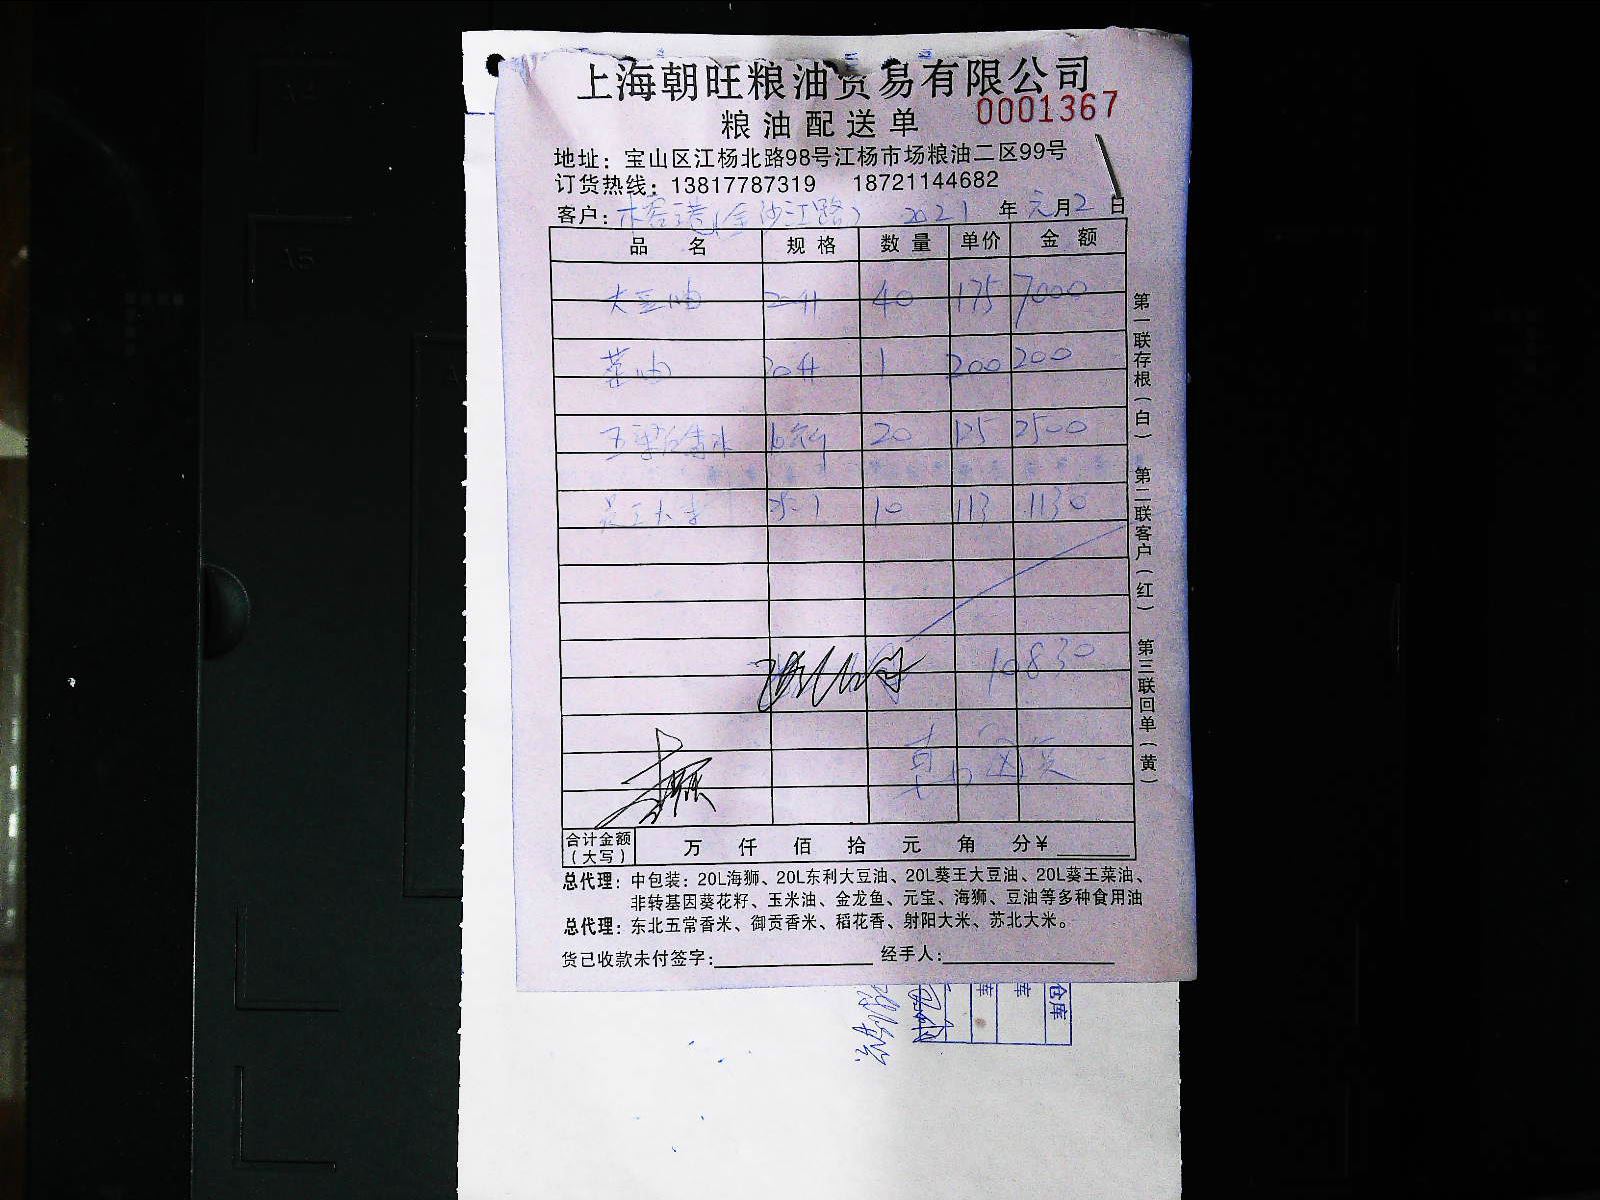 上海朝旺粮油贸易有限公司
0001367
粮油配送单
地址：宝山区江杨北路98号江杨市场粮油二区99号
订货热线：13817787319 18721144682
客户：木客港(金沙江路) 2021 年 元 月 2 日
品 名 规 格 数 量 单价 金 额
大豆油 20升 40 175 7000
菜油 20升 1 200 200
20 125 2500
10 113 1130
10830
合计金额（大写） 万 仟 佰 拾 元 角 分￥
总代理：中包装：20L海狮、20L东利大豆油、20L葵王大豆油、20L葵王菜油、
非转基因葵花籽、玉米油、金龙鱼、元宝、海狮、豆油等多种食用油
总代理：东北五常香米、御贡香米、稻花香、射阳大米、苏北大米。
货已收款未付签字： 经手人：
第一联存根（白） 第二联客户（红） 第三联回单（黄）
库 库 仓库